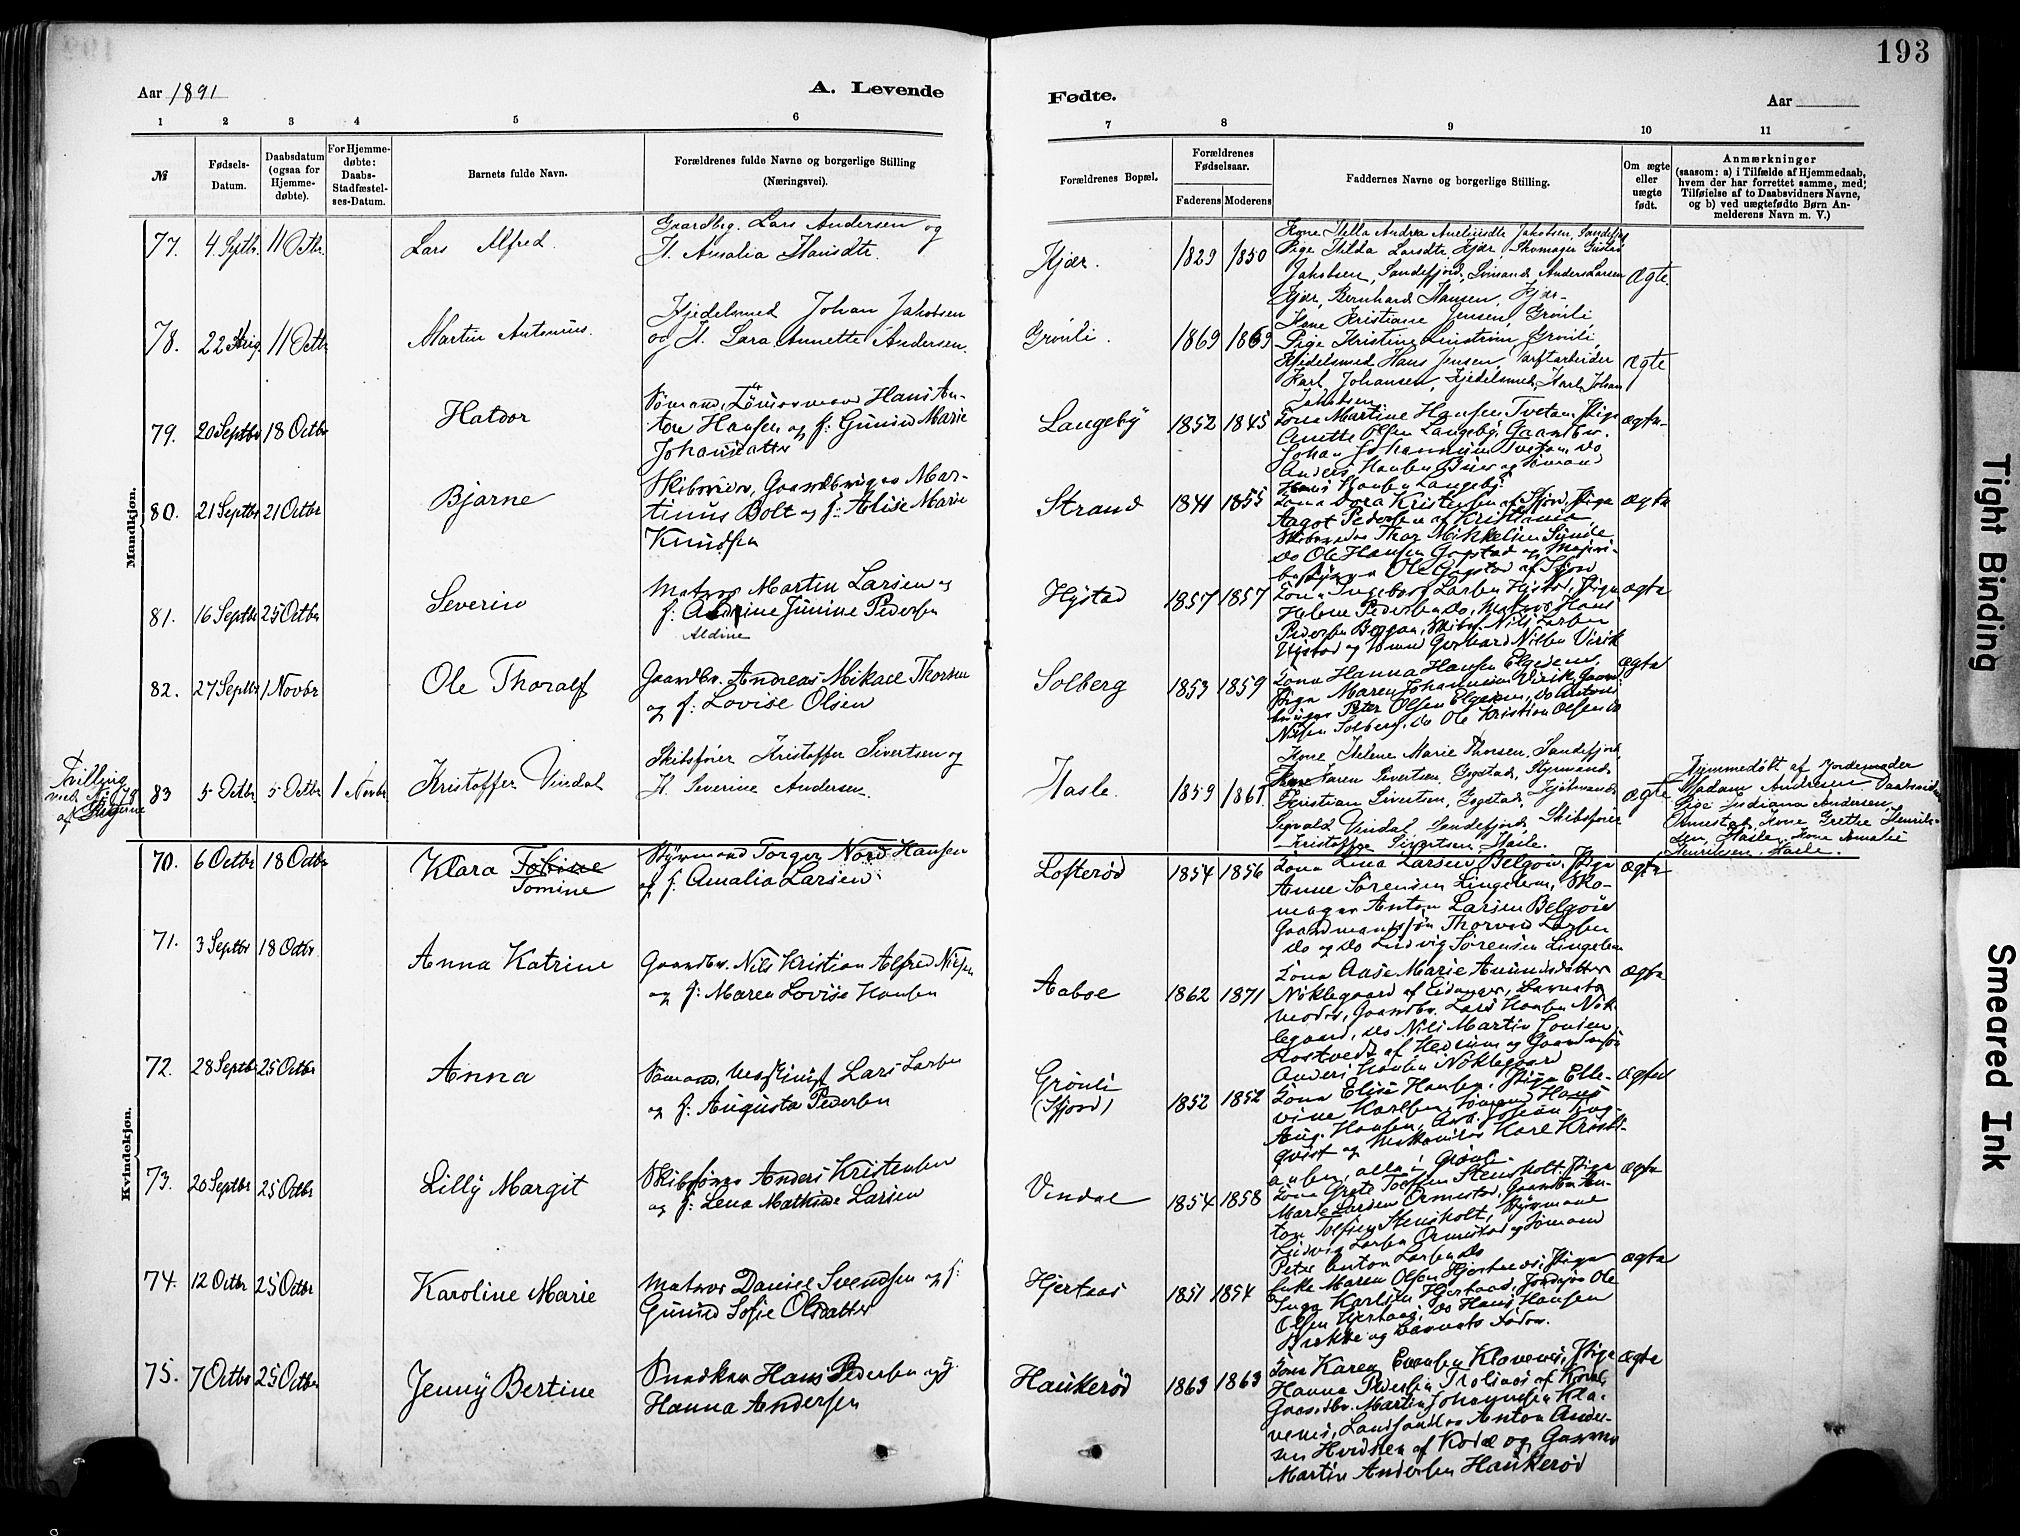 193
Aar 1891
A. Levende
Fødte.
Aar
1 2 3 4 5 6 7 8 9 10 11
№
Fødsels-
Datum.
Daabsdatum
(ogsaa for
Hjemme-
døbte).
For Hjemme-
døbte:
Daabs-
Stadfæstel-
ses-Datum.
Barnets fulde Navn.
Forældrenes fulde Navne og borgerlige Stilling
(Næringsvei).
Forældrenes Bopæl.
Forældrenes
Fødselsaar.
Faderens Moderens
Faddernes Navne og borgerlige Stilling.
Om ægte
eller
uægte
født.
Anmærkninger
(saasom: a) i Tilfælde af Hjemmedaab,
hvem der har forrettet samme, med
Tilføielse af to Daabsvidners Navne,
og b) ved uægtefødte Børn An-
melderens Navn m. V.)
Mandkjøn.
77. 4 Septbr. 11 Octbr.
Lars Alfred
Gaardbrg. Lars Andersen og
H. Amalia Hansdtr.
Kjær. 1829 1850
Pige Hilda Larsdtr. Kjær, Skomager Gustav
Jakobsen, Sandefjord, Sømand Anders Larsen
Kjær, Bernhard Hansen, Kjær.
Ægte.
78. 22 Aug. 11 Octbr.
Martin Antonius.
Kjedelsmed Johan Jakobsen
og H. Lara Annette Andersen.
Grønli. 1869 1869
Kone Kristiane Jensen, Grønli,
Pige Kristine Linstrøm, Grønli,
Kjedelsmed Hans Jensen, Værftarbeider
Karl Johansen, Kjedelsmed Karl Johan
Jakobsen.
Ægte
79. 20 Septbr 18 Octbr
Haldor
Sømand, Tømmermand Hans An-
ton Hansen og H: Gunild Marie
Johannsdatter
Langeby 1852 1845
Kona Martine Hansen Tvetan, Pige
Anette Olsen Langeby, Gaardbr.
Johan Johannsen Tvetan, do
Anders Hansen Buer og Sømand
Hans Hansen Langeby.
Ægte
80. 21 Septbr 21 Octbr
Bjarne
Skibsreder, Gaardbruger Mar-
tinus Bolt og H: Alise Marie
Knudsen
Strand 1841 1855
Aagot Pedersen af Kristiania
Skibsreder Thor Mikkelsen
do Ole Hansen Gogstad og
Ægte
81. 16 Septbr 25 Octbr
Severin
Matros Martin Larsen og
H. Junine Pedersen
Aldine
Hystad 1857 1857
Kona Ingeborg Larsen Hystad, Pige
Helene Pedersen do, Matros Hans
Pedersen Bergan, Skibsf. Nils Larsen
Hystad og Gerhard Nilsen Virik
Ægte
82. 27 Septbr 1 Novbr
Ole Thoralf
Gaardbr. Andreas Mikael Thorsen
og H. Lovise Olsen
Solberg 1853 1859
Kona Hanna Hansen Elgesem,
Pige Maren Johannesen Virik, Gaard-
bruger Peter Olsen Elgesem, do Antoni
Nilsen Solberg, do Ole Kristian Olsen do
Ægte
Tvilling
med No 78
af Pigerne
83 5 Octbr 5 Octbr 1 Novbr
Kristoffer Vindal
Skibsfører Kristoffer Sivertsen og
H. Severine Andersen
Hasle. 1859 1861
Kone Helene Marie Thorsen, Sandefjord,
Kone Karen Sivertsen, Gogstad, Styrmand
Kristian Sivertsen, Gogstad, Kjøbmand
Sigvald Vindal Sandefjord, Skibsfører
Kristoffer Sivertsen, Hasle.
Ægte
Hjemmedøbt af Jordemoder
Madam Andresen. Daabsvidner
Pige Indiana Andersen,
Ormestad, Kone Grethe Henrik-
sen, Hasle, Kone Amalie
Henriksen, Hasle.
Kvindekjøn.
70. 6 Octbr 18 Octbr
Klara Tobine
Tomine
Styrmand Torger Nord Hansen
og H. Amalia Larsen
Lofterød 1854 1856
Kona Lina Larsen Belgøn, Pige
Anne Sørensen Lingelem, Sko-
mager Anton Larsen Belgøn
Gaardmandssøn Thorvald Larsen
do og do Ludvig Sørensen Lingelem
Ægte
71. 3 Septbr 18 Octbr
Anna Katrine
Gaardbr. Nils Kristian Alfred Nilsen
og H: Maren Lovise Hansen
Aaboe 1862 1871
Kona Aase Marie Amundsdatter
Nøklegaard af Eidanger, Barnets
Moder, Gaardbr. Lars Hansen Nøk-
legaard, do Nils Martin Jonsen
Rostvedt af Hedrum og Gaardmsøn
Anders Hansen Nøklegaard
Ægte
72. 28 Septbr 25 Octbr
Anna
Sømand, Maskinist Lars Larsen
og H: Augusta Pedersen
Grønli
(Sfjord) 1852 1852
Kona Elise Hansen, Pige Elle-
vine Karlsen, Sømand Hans
Aug. Hansen, Arb. Johan Ling-
qvist og Karl Kristi-
ansen, alle i Grønli
Ægte
73. 20 Septbr 25 Octbr
Lilly Margit
Skibsfører Anders Kristensen
og H: Lena Mathilde Larsen
Vindal 1854 1858
Kona Grete Tolfsen Stensholt, Pige
Marie Larsen Ormestad, Gaardbr. An-
ton Tolfsen Stensholt, Styrmand
Ludvig Larsen Ormestad og Sømand
Peter Anton Larsen do
Ægte
74. 12 Octbr 25 Octbr
Karoline Marie
Matros Daniel Svendsen og H:
Gunild Sofie Olsdatter
Hjertaas 1851 1854
Enke Maren Olsen Hjertaas, Pige
Inga Karlsen Hjertaas, Ole
Olsen Hjertaas, do Hans Hansen
og Barnets Fader.
Ægte
75. 7 Octbr 25 Octbr
Jenny Bertine
Snedker Hans Pedersen og H:
Hanna Andersen
Haukerød 1863 1863
Kone Karen Evensen Klavenes, Pige
Hanna Pedersen af Kodal,
Gaardbr. Martin Johannesen Kla-
venes, Landhandler Anton Ander-
sen af Kodal og
Martin Andersen Haukerød
Ægte
Tight Binding
Smeared Ink